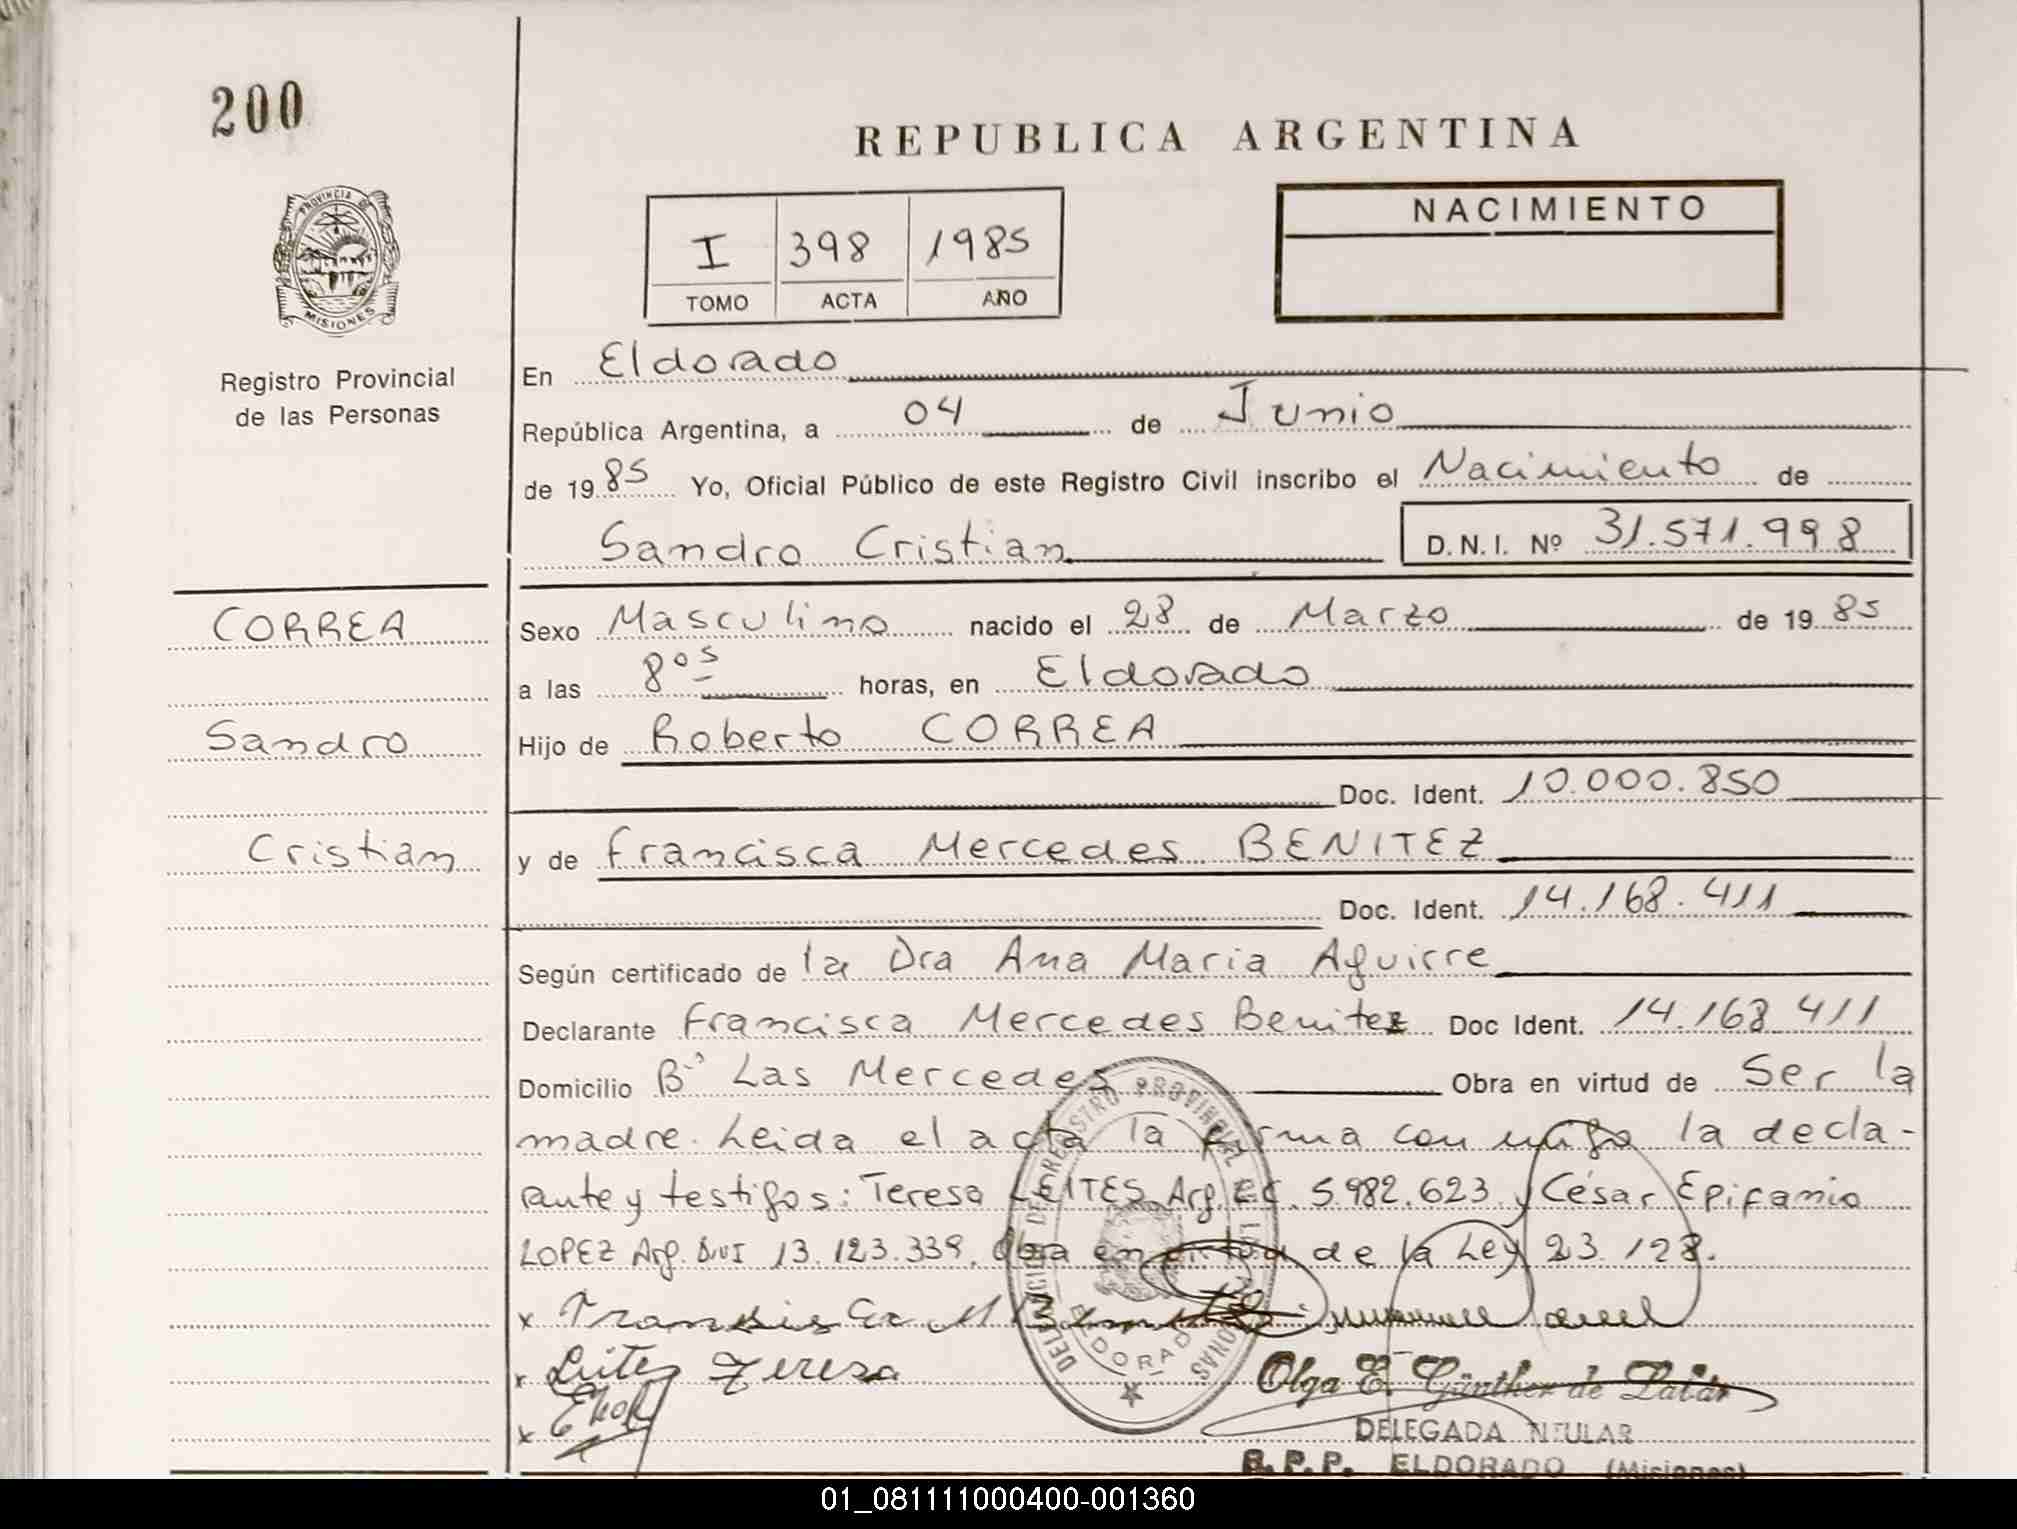 200
REPUBLICA ARGENTINA
PROVINCIA DE
MISIONES
Registro Provincial
de las Personas
I 398 1985
TOMO ACTA AÑO
NACIMIENTO
En Eldorado
República Argentina, a 04 de Junio
de 1985 Yo, Oficial Público de este Registro Civil inscribo el Nacimiento de
Sandro Cristian D.N.I. Nº 31.571.998
CORREA
Sandro
Cristian
Sexo Masculino nacido el 28 de Marzo de 1985
a las 8⁰⁵ horas, en Eldorado
Hijo de Roberto CORREA
Doc. Ident. 10.000.850
y de Francisca Mercedes BENITEZ
Doc. Ident. 14.168.411
Según certificado de la Dra Ana Maria Aguirre
Declarante Francisca Mercedes Benitez Doc Ident. 14.168.411
Domicilio Bº Las Mercedes Obra en virtud de Ser la
madre. Leida el acta la firma con migo la decla-
rante y testigos: Teresa LEITES Arg. L.C. 5.982.623 y César Epifanio
LOPEZ Arg. DNI 13.123.339. Obra en virtud de la Ley 23.128.
x
x Leites Teresa
x
DELEGACION DEL REGISTRO PROVINCIAL DE LAS PERSONAS
ELDORADO
Olga E. Günther de
DELEGADA TITULAR
R.P.P. ELDORADO (Misiones)
01_081111000400-001360